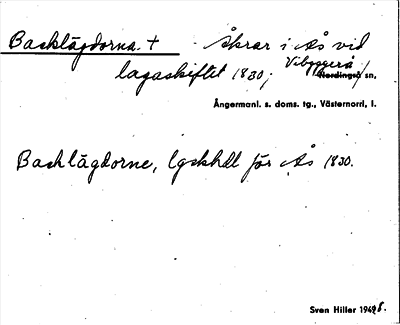 Backlägdorna + åkrar i Ås vid
lagaskiftet 1830; Vibyggerå
Nordingrå sn,
Ångermanl. s. doms. tg., Västernorrl, l.
Backlägdorne, lgskhdl för Ås 1830.
Sven Hiller 1948.